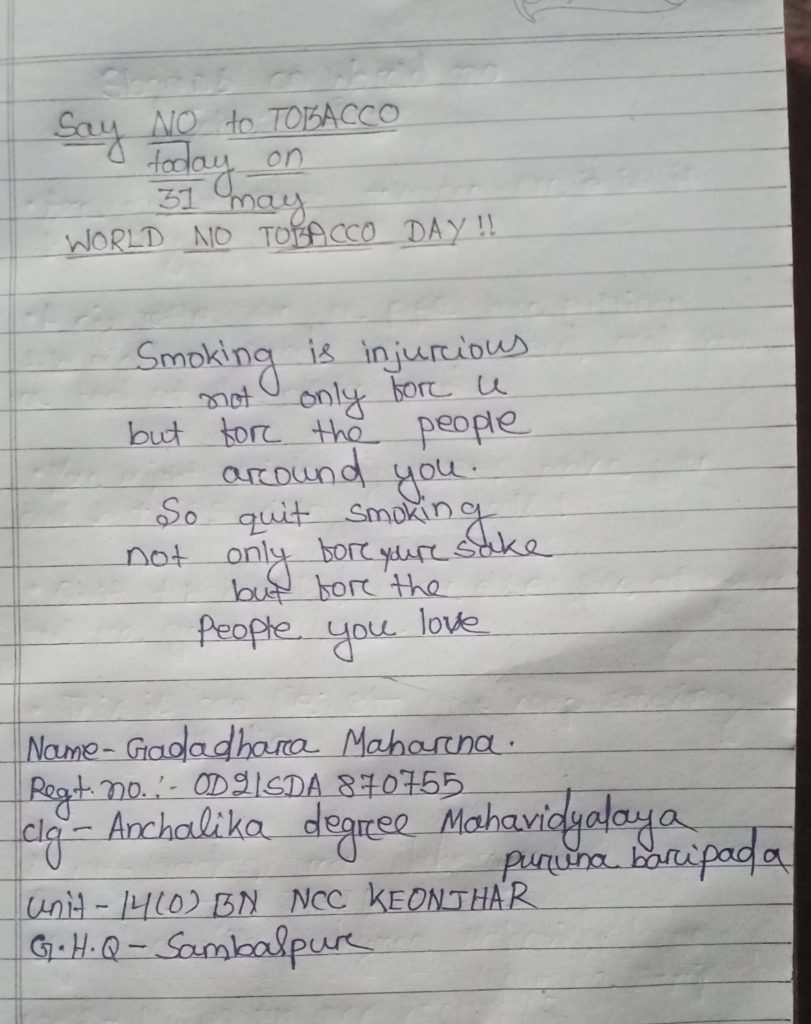 Say NO to TOBACCO
today on
31 may
WORLD NO TOBACCO DAY!!
Smoking is injurious
not only for u
but for the people
around you.
So quit smoking
not only for your sake
but for the
People you love
Name - Gadadhara Maharna.
Regt. no. :- OD21SDA 870755
clg - Anchalika degree Mahavidyalaya
puruna baripada
unit - 14(O) BN NCC KEONJHAR
G.H.Q - Sambalpur